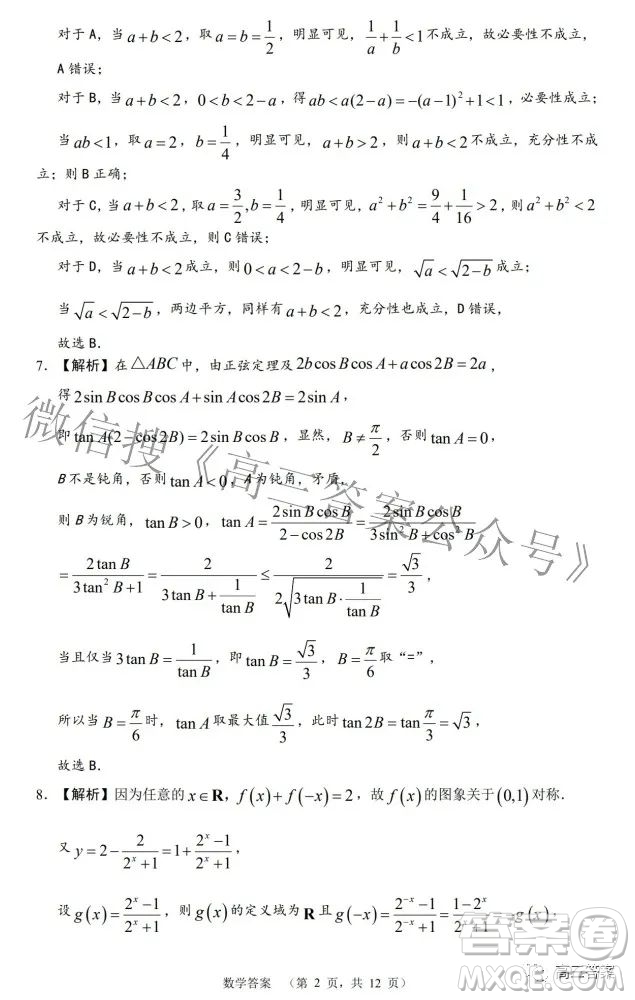 对于 A，当 a+b<2，取 a=b=1/2，明显可见，1/a+1/b<1 不成立，故必要性不成立，
A 错误；
对于 B，当 a+b<2，0<b<2-a，得 ab<a(2-a)=-(a-1)²+1<1，必要性成立；
当 ab<1，取 a=2，b=1/4，明显可见，a+b>2，则 a+b<2 不成立，充分性不成
立；则 B 正确；
对于 C，当 a+b<2，取 a=3/2,b=1/4，明显可见，a²+b²=9/4+1/16>2，则 a²+b²<2
不成立，故必要性不成立，则 C 错误；
对于 D，当 a+b<2 成立，则 0<a<2-b，明显可见，√a<√(2-b) 成立；
当 √a<√(2-b)，两边平方，同样有 a+b<2，充分性也成立，D 错误，
故选 B．
7．【解析】在 △ABC 中，由正弦定理及 2b cos B cos A+a cos 2B=2a，
得 2sin B cos B cos A+sin A cos 2B=2sin A，
即 tan A(2-cos 2B)=2sin B cos B，显然，B≠π/2，否则 tan A=0，
B 不是钝角，否则 tan A<0，A 为钝角，矛盾．
则 B 为锐角，tan B>0，tan A=2sin B cos B/(2-cos 2B)=2sin B cos B/(3sin²B+cos²B)
=2tan B/(3tan²B+1)=2/(3tan B+1/tan B)≤2/(2√(3tan B·1/tan B))=√3/3，
当且仅当 3tan B=1/tan B，即 tan B=√3/3，B=π/6 取“=”，
所以当 B=π/6 时，tan A 取最大值 √3/3，此时 tan 2B=tan π/3=√3，
故选 B．
8．【解析】因为任意的 x∈R，f(x)+f(-x)=2，故 f(x) 的图象关于 (0,1) 对称．
又 y=2-2/(2ˣ+1)=1+(2ˣ-1)/(2ˣ+1)，
设 g(x)=(2ˣ-1)/(2ˣ+1)，则 g(x) 的定义域为 R 且 g(-x)=(2⁻ˣ-1)/(2⁻ˣ+1)=(1-2ˣ)/(1+2ˣ) g(x)
数学答案 （第 2 页，共 12 页）
微信搜《高三答案公众号》
答案圈
MXQE.COM
高三答案